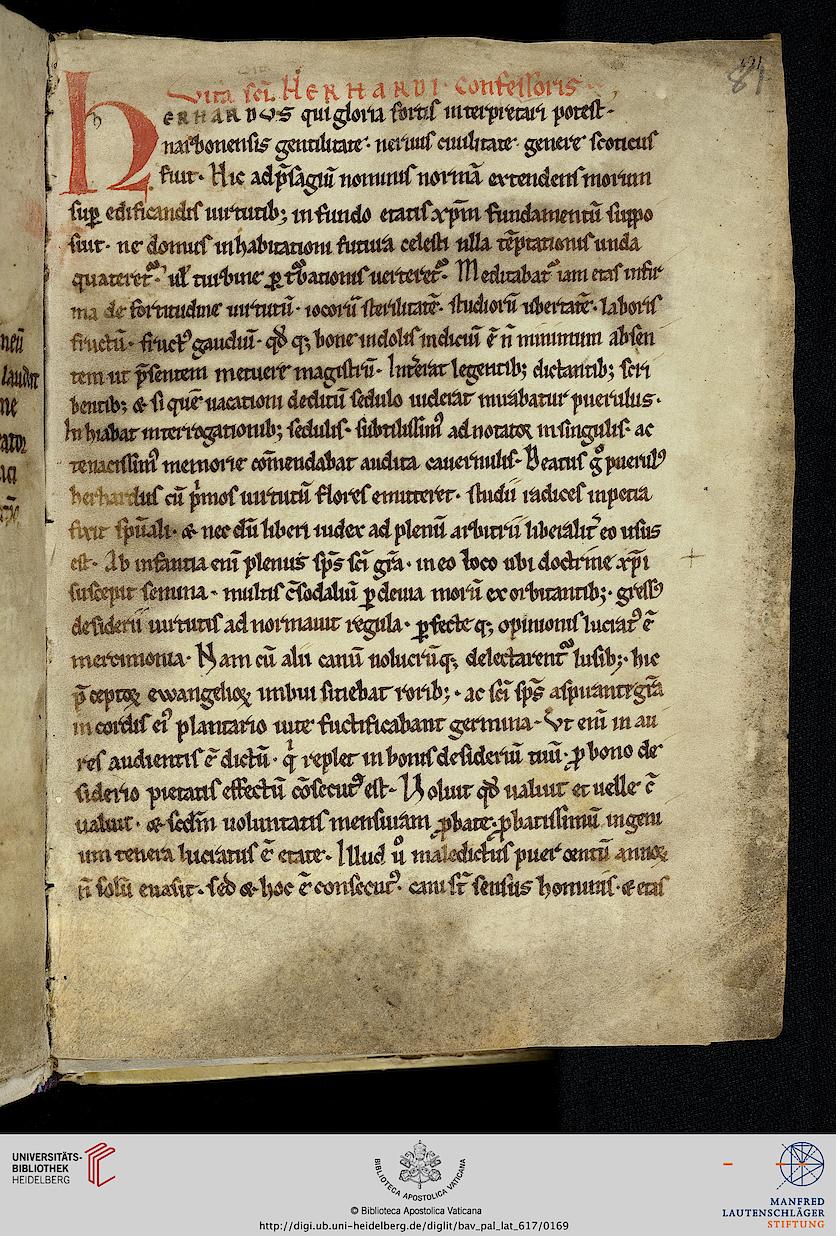 Vita sci. HERHARDI Confessoris
81
hERHARDVS qui gloria fortis interpretari potest·
narbonensis gentilitate· neruus ciuilitate· genere scoticus
fuit· Hic ad p̄sagiū nominis normā extendens morum
sup̄ edificandis uirtutib; in fundo etatis xp̄m fundamentū suppo
suit· ne domus inhabitationi futura celesti ulla tēptationis unda
quateret᷑· ul̓ turbine ꝑt᷑bationis uerteret᷑· Meditabat᷑ iam etas infir
ma de fortitudine uirtutū· iocorū sterilitatē· studiorū ubertatē· laboris
fructū· fructꝰ gaudiū· qd̄ q; bone indolis indiciū ē n̄ minimum absen
tem ut p̄sentem metuere magistrū· Int̓erat legentib; dictantib; scri
bentib; & si quē uacationi deditū sedulo uiderat mirabatur puerulus·
Inhiabat interrogationib; sedulis· subtilissimꝰ adnotatoꝝ in singulis· ac
tenacissimꝰ memorie cōmendabat audita cauernulis· Beatus g̊ puerulꝰ
herhardus cū p̓mos uirtutū flores emitteret· studii radices in petra
fixit sp̄uali· & nec dū liberi iudex ad plenū arbitrii liberalit̓ eo usus
est· Ab infantia eni plenus sp̄s sc̄i gr̄a· in eo loco ubi doctrine xp̄i
suscepit semina· multis c̄sodaliū ꝑ deuia morū exorbitantib;· gressꝰ
desiderii uirtutis ad normauit regula· ꝑfecte q; opinionis luciatꝰ ē
mercimonia· Nam cū alii canū uolucrūq; delectarent᷑ lusib;· hic
p̄ceptoꝝ ewangelioꝝ imbui sitiebat rorib;· ac sc̄i sp̄s aspirante gr̄a
in cordis eiꝰ plantario uite fuctificabant germina· Vt eni in au
res audientis ē dictū· qͥ replet in bonis desideriū tuū· ꝓ bono de
siderio pietatis effectū cōsecutꝰ est· Voluit qd̄ ualuit et uelle ē
ualuit· & sc̄dm uoluntatis mensuram ꝓbate· ꝓbatissimū ingeni
um tenera luciatus ē etate· Illud ů maledictus puer centū annoꝝ
n̄ solū euasit· sed & hoc ē consecutꝰ· cani st̄ sensus hominis· & etas
neū
laudit
ne
UNIVERSITÄTS-
BIBLIOTHEK
HEIDELBERG
BIBLIOTECA APOSTOLICA VATICANA
© Biblioteca Apostolica Vaticana
http://digi.ub.uni-heidelberg.de/diglit/bav_pal_lat_617/0169
MANFRED
LAUTENSCHLÄGER
STIFTUNG